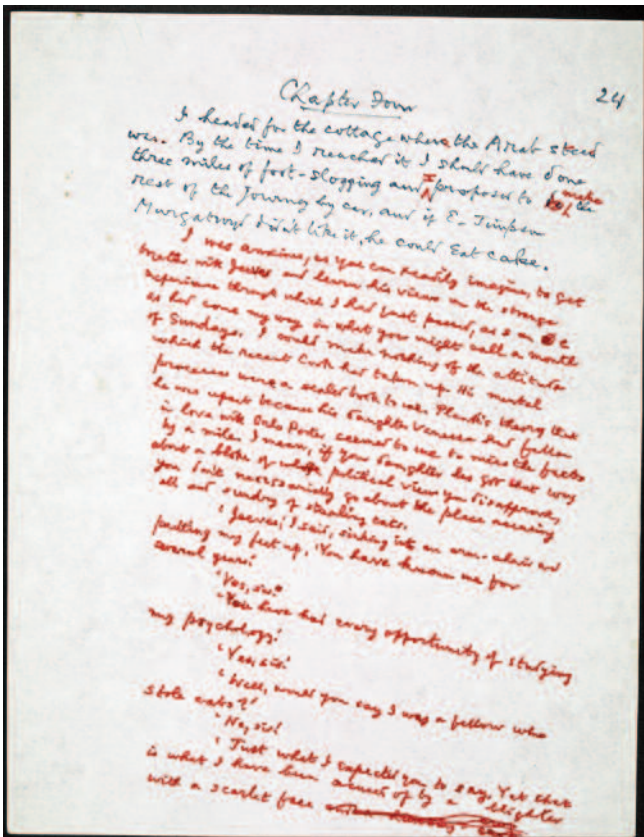 Chapter Four
24
I headed for the cottage where the Arab steed
was. By the time I reached it I should have done
three miles of foot-slogging and I proposed to make the
rest of the journey by car, and if E. Jimpson
Murgatroyd didn't like it, he could eat cake.
I was anxious, as you can readily imagine, to get
together with Jeeves and learn his views on the strange
experience through which I had just passed, as s
as had come my way in what you might call a month
of Sundays. I could make nothing of the attitude
which the recent Cook had taken up. His mental
processes were a sealed book to me. Plank's theory that
he was upset because his daughter Vanessa had fallen
in love with Orlo Porter, seemed to me to miss the facts
by a mile. I mean, if your daughter has got that way
about a bloke of whose political views you disapprove,
you don't necessarily go about the place accusing
all and sundry of stealing cats.
'Jeeves,' I said, sinking into an arm-chair and
putting my feet up, 'You have known me for
several years.'
'Yes, sir.'
'You have had every opportunity of studying
my psychology.'
'Yes, sir.'
'Well, would you say I was a fellow who
stole cats?'
'No, sir.'
'Just what I expected you to say. Yet that
is what I have been accused of by a blighter
with a scarlet face